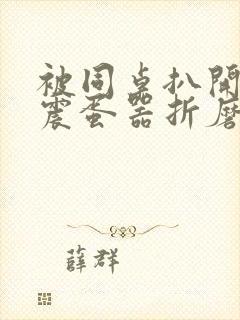 被同桌扒開
震蛋器折磨
薛群